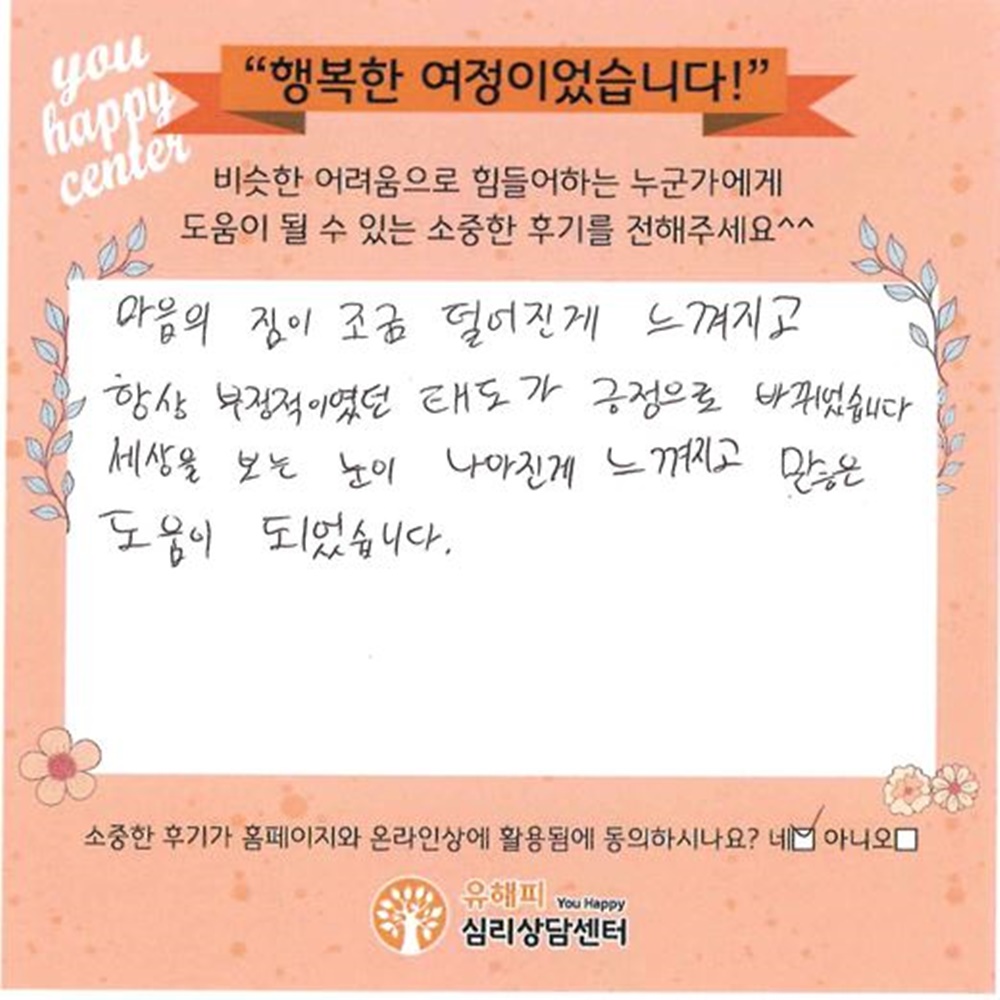 you
happy
center
“행복한 여정이었습니다!”
비슷한 어려움으로 힘들어하는 누군가에게
도움이 될 수 있는 소중한 후기를 전해주세요^^
마음의 짐이 조금 덜어진게 느껴지고
항상 부정적이였던 태도가 긍정으로 바뀌었습니다
세상을 보는 눈이 나아진게 느껴지고 많은
도움이 되었습니다.
소중한 후기가 홈페이지와 온라인상에 활용됨에 동의하시나요? 네 아니오
유해피 You Happy
심리상담센터